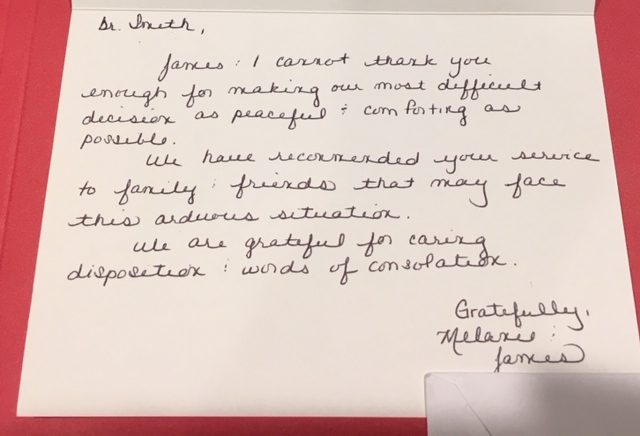 Dr. Smith,
James & I cannot thank you
enough for making our most difficult
decision as peaceful & comforting as
possible.
We have recommended your service
to family & friends that may face
this arduous situation.
We are grateful for caring
disposition & words of consolation.
Gratefully,
Melanie &
James